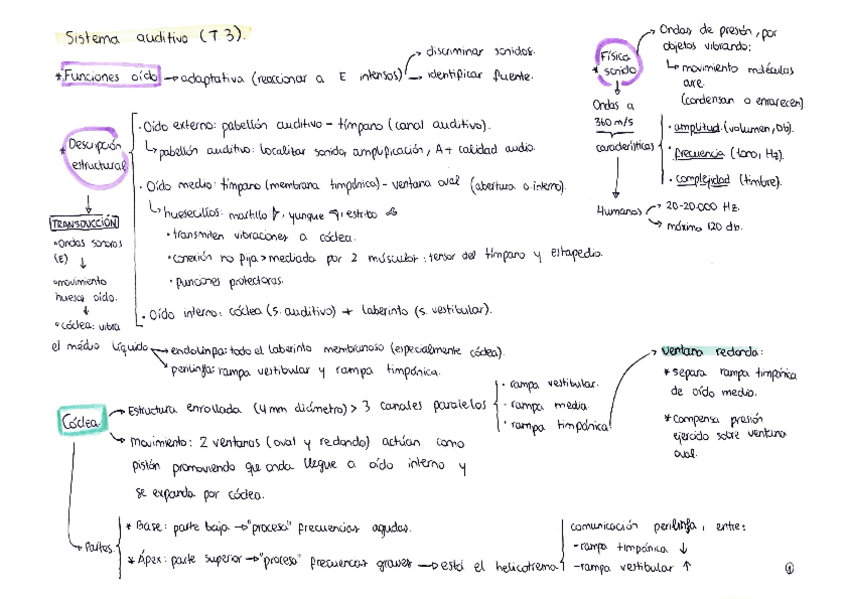 Sistema auditivo (T3).
*Funciones oído → adaptativa (reaccionar a E intensos)
→ discriminar sonidos.
→ identificar fuente.
* Física sonido
→ Ondas de presión, por
objetos vibrando:
↳ movimiento moléculas
aire
(condensan o enrarecen)
Ondas a
360 m/s
características
· amplitud (volumen, Db).
· frecuencia (tono, Hz).
· complejidad (timbre).
Humanos
→ 20-20.000 Hz.
→ máximo 120 db.
* Descripción
estructural
· Oído externo: pabellón auditivo - tímpano (canal auditivo).
↳ pabellón auditivo: localizar sonido, amplificación, A+ calidad audio.
· Oído medio: tímpano (membrana timpánica) - ventana oval (abertura o.interno).
↳ huesecillos: martillo, yunque, estribo
· transmiten vibraciones a cóclea.
· conexión no fija > mediada por 2 músculos: tensor del tímpano y estapedio.
· funciones protectoras.
· Oído interno: cóclea (s. auditivo) + laberinto (s. vestibular).
TRANSDUCCIÓN
· Ondas sonoras
(E) ↓
· movimiento
huesos oído.
↓
· cóclea: vibra
el médio líquido
→ endolinfa: todo el laberinto membranoso (especialmente cóclea).
→ perilinfa: rampa vestibular y rampa timpánica.
Cóclea
→ Estructura enrollada (4 mm diámetro) > 3 canales paralelos
· rampa vestibular.
· rampa media.
· rampa timpánica.
→ ventana redonda:
* separa rampa timpánica
de oído medio.
* Compensa presión
ejercida sobre ventana
oval.
→ Movimiento: 2 ventanas (oval y redonda) actúan como
pistón promoviendo que onda llegue a oído interno y
se expanda por cóclea.
→ Partes
* Base: parte baja → "procesa" frecuencias agudas.
* Ápex: parte superior → "procesa" frecuencias graves → está el helicotrema
comunicación perilinfa, entre:
- rampa timpánica ↓
- rampa vestibular ↑
1